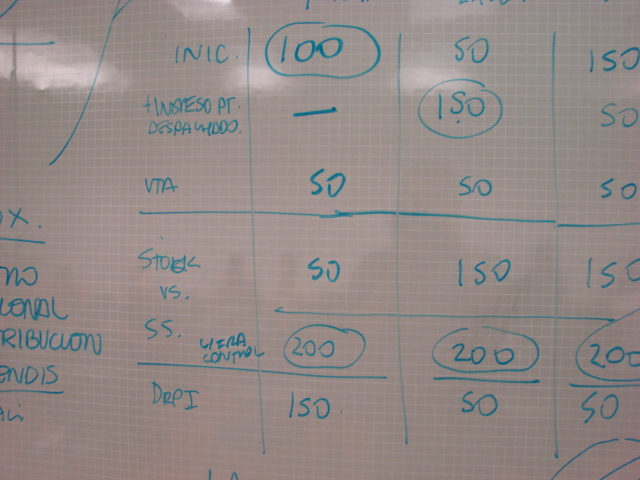 INIC. 100 50 150
+ INGRESO PT. — 150 50
DESPACHADO.
VTA 50 50 50
OX.
STOCK 50 150 150
VS.
SS. LIERA 200 200 200
CONTROL
RIBUCION
ENDIS
DRPI 150. 50 50